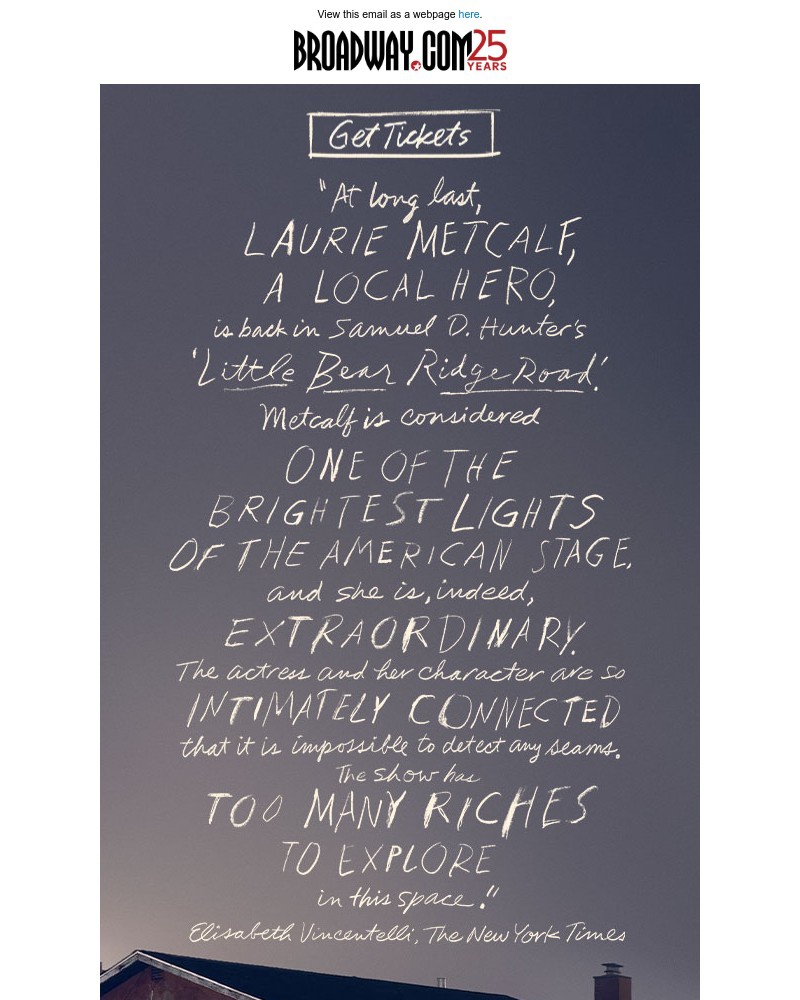 View this email as a webpage here.
BROADWAY.COM 25 YEARS
Get Tickets
"At long last,
LAURIE METCALF,
A LOCAL HERO,
is back in Samuel D. Hunter's
'Little Bear Ridge Road.'
Metcalf is considered
ONE OF THE
BRIGHTEST LIGHTS
OF THE AMERICAN STAGE,
and she is, indeed,
EXTRAORDINARY.
The actress and her character are so
INTIMATELY CONNECTED
that it is impossible to detect any seams.
The show has
TOO MANY RICHES
TO EXPLORE
in this space."
Elisabeth Vincentelli, The New York Times